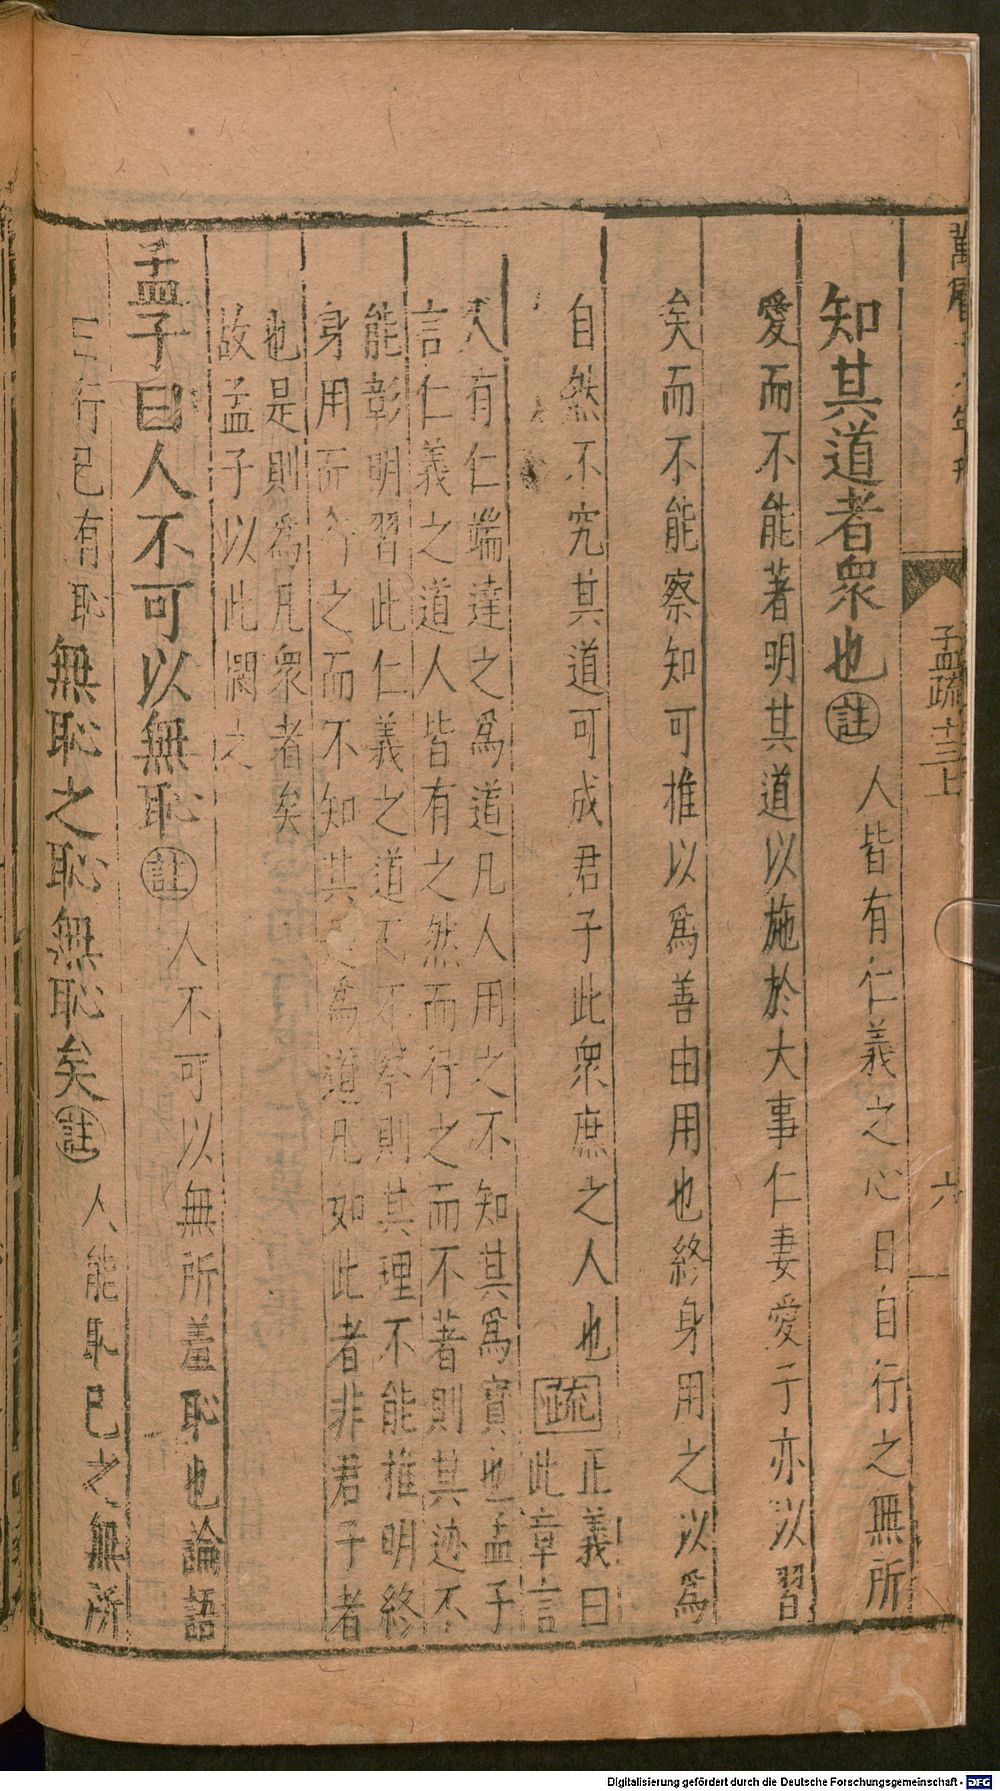 孟疏十三上
六
知其道者衆也註人皆有仁義之心日自行之無所
愛而不能著明其道以施於大事仁妻愛子亦以習
矣而不能察知可推以爲善由用也終身用之以爲
自然不究其道可成君子此衆庶之人也疏正義曰
此章言
人有仁端達之爲道凡人用之不知其爲寶也孟子
言仁義之道人皆有之然而行之而不著則其迹不
能彰明習此仁義之道而不察則其理不能推明終
身用之而不知其爲道凡如此者非君子者
也是則爲凡衆者矣
故孟子以此閔之
孟子曰人不可以無恥註人不可以無所羞恥也論語
曰行己有恥無恥之恥無恥矣註人能恥己之無所
Digitalisierung gefördert durch die Deutsche Forschungsgemeinschaft - DFG